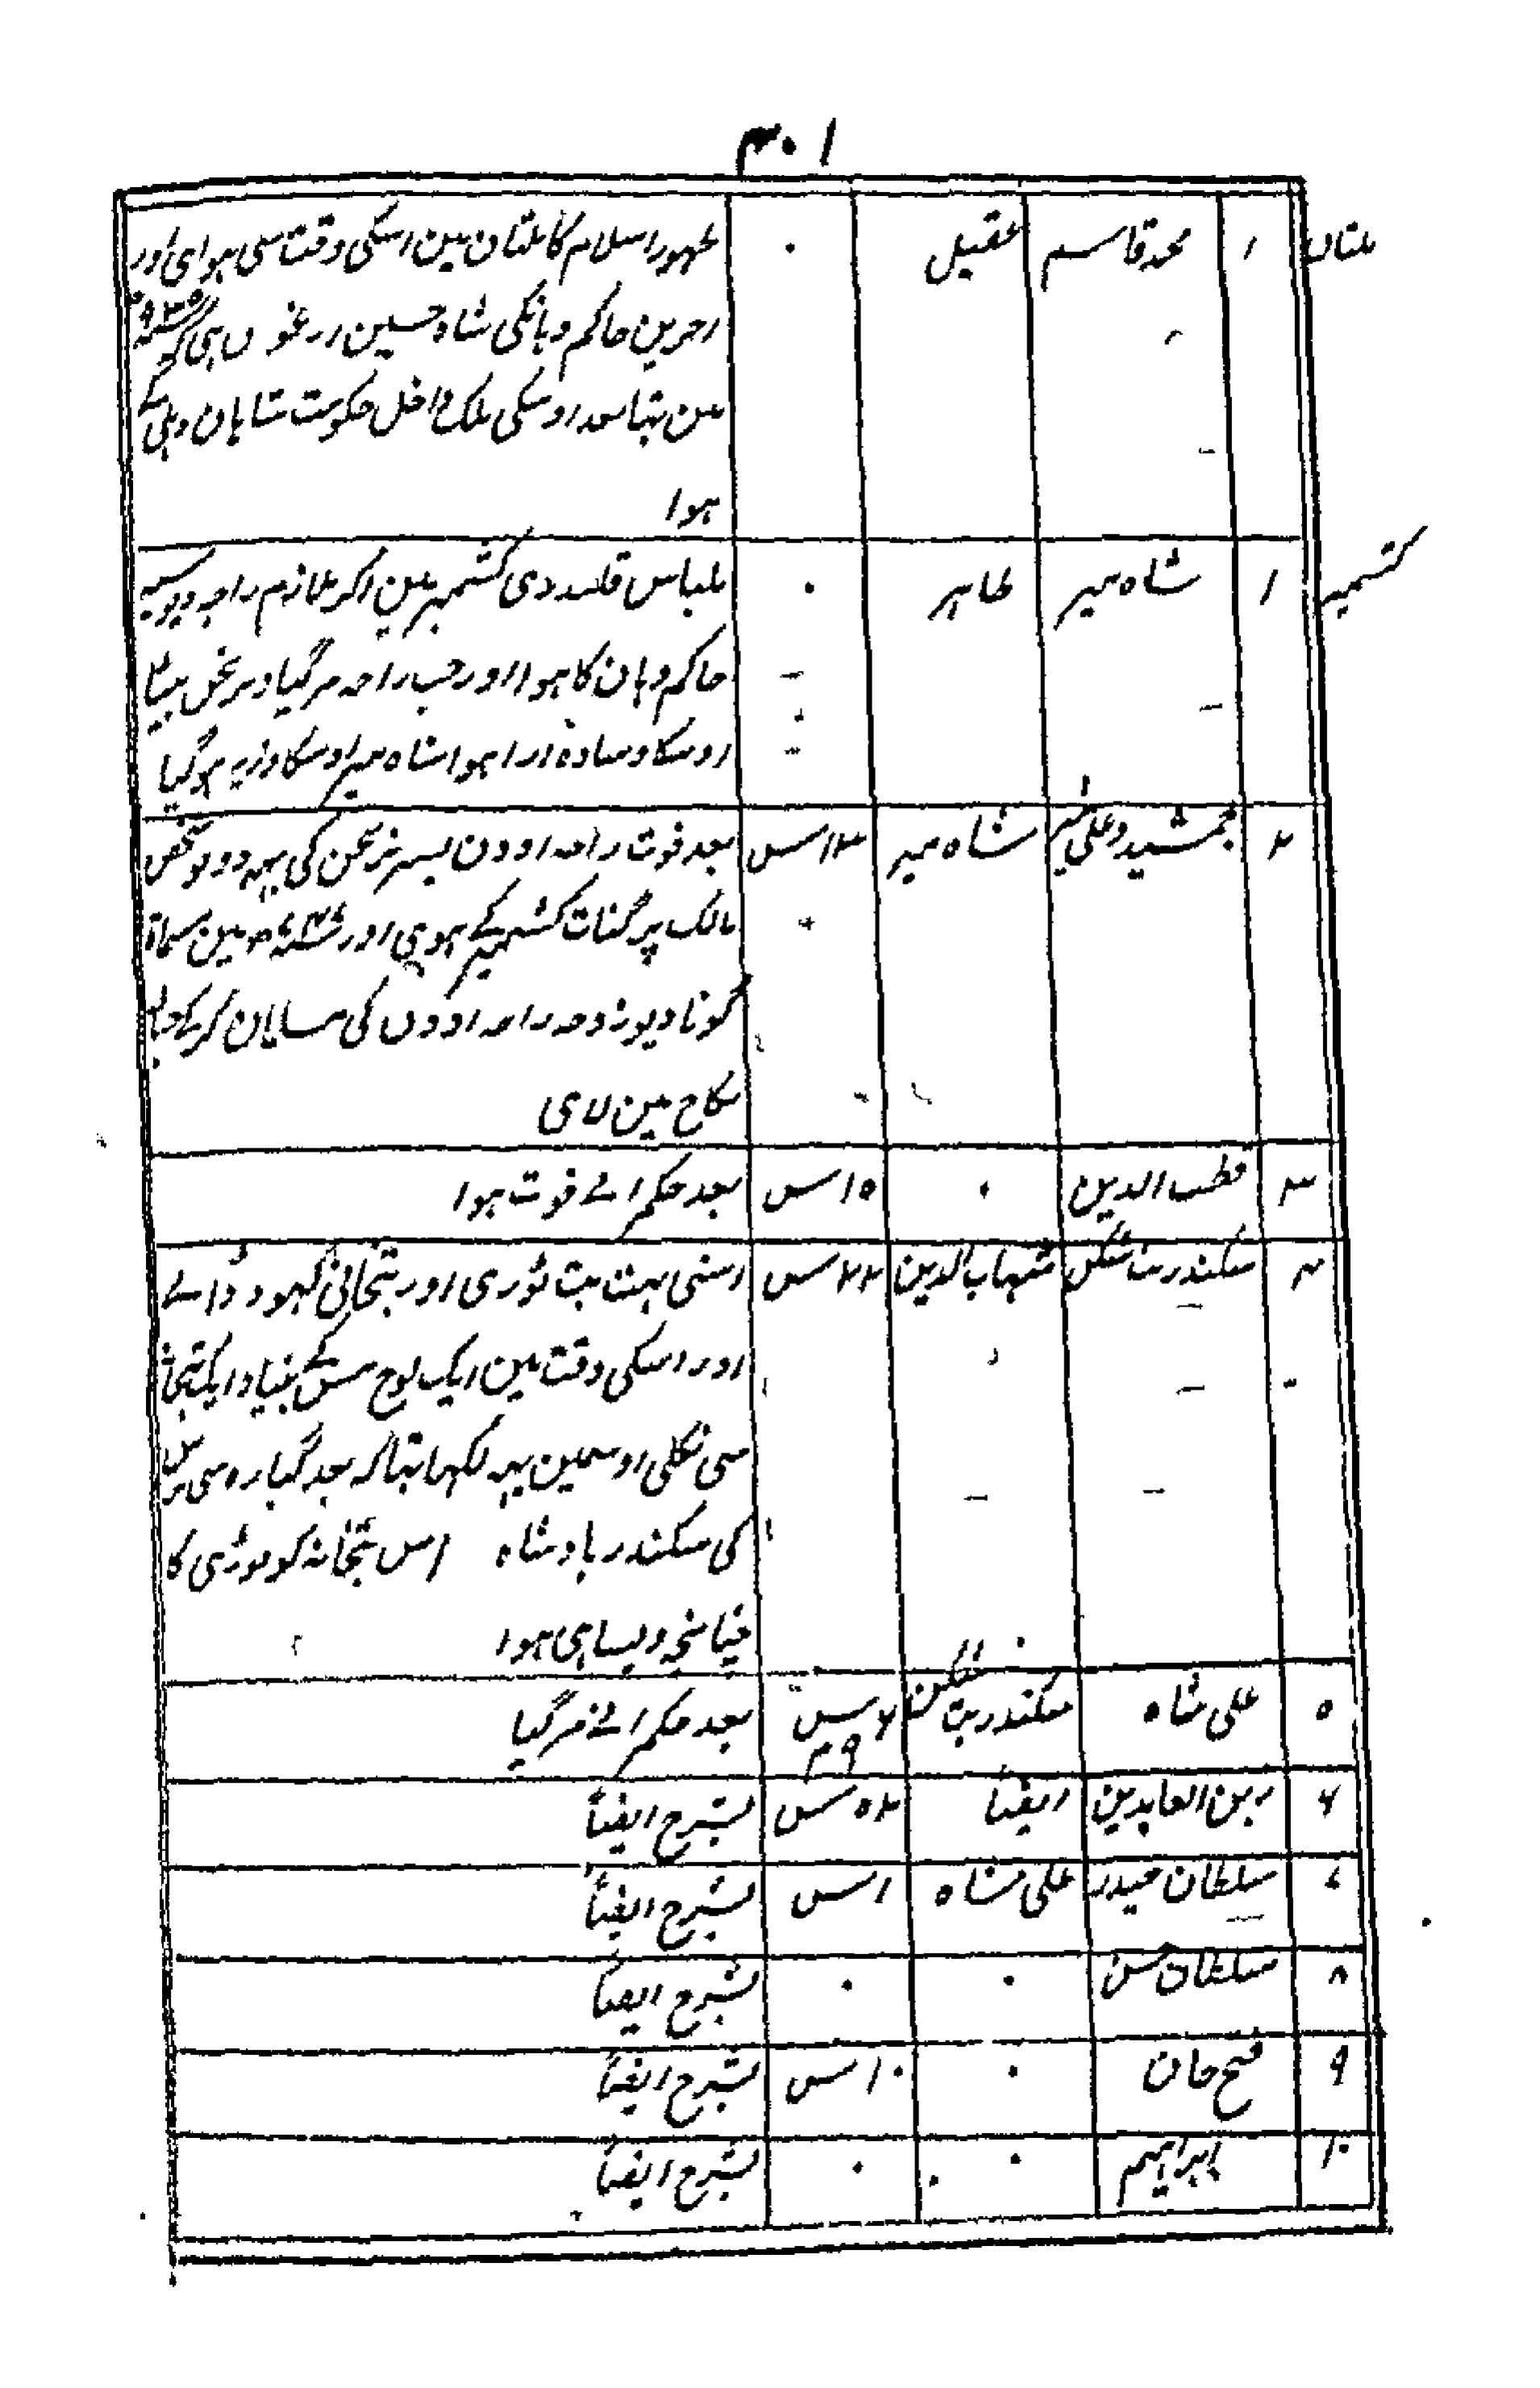 ۳۰۱
ملتان ۱ محمد قاسم عقیل ۰ ظہور اسلام کا ملتان مین اسکی وقت سی ہوا ہی اور
حاکم وہانکی شاہ حسین
ملک داخل حکومت شاہان دہلی کے
ہوا
کشمیر ۱ شاہ میر طاہر ۰ بلباس قلندری کشمیر مین اکر ملازم راجہ
حاکم وہان کا ہوا اور جب راجہ مرگیا و رنجن بیٹا
اوسکا وسادہ ارا ہوا شاہ میر اوسکا وزیر ہوگیا
۲ جمشید و علی شیر شاہ میر بعد فوت راجہ اودن پسر رنجن کی یہہ دونو شخص
مالک پرگنات کشمیر کے ہوی اور مین مسماۃ
زوجہ راجہ اودن کی
نکاح مین لای
۳ قطب الدین ۰ ۱۵ س بعد حکمرانے فوت ہوا
۴ سکندر بت شکن شہاب الدین ۲۲ س اسنی بہت بت توڑی اور بتخانی کہود ڈالے
اور اسکی وقت مین ایک لوح مس کے بنیاد ایک بتخانہ
سی نکلی اوسمین یہہ لکہا تہا کہ بعد گیارہ سی برس
کی سکندر بادشاہ اس بتخانہ کو توڑی کا
چنانچہ ویسا ہی ہوا
۵ علی شاہ سکندر بت شکن ۶ س ۹ م بعد حکمرانے مرگیا
۶ زین العابدین ایضاً ۵۲ س بشرح ایضاً
۷ سلطان حیدر علی شاہ ۱ س بشرح ایضاً
۸ سلطان حسن ۰ ۰ بشرح ایضاً
۹ فتح خان ۰ ۱۰ س بشرح ایضاً
۱۰ ابراہیم ۰ ۰ بشرح ایضاً